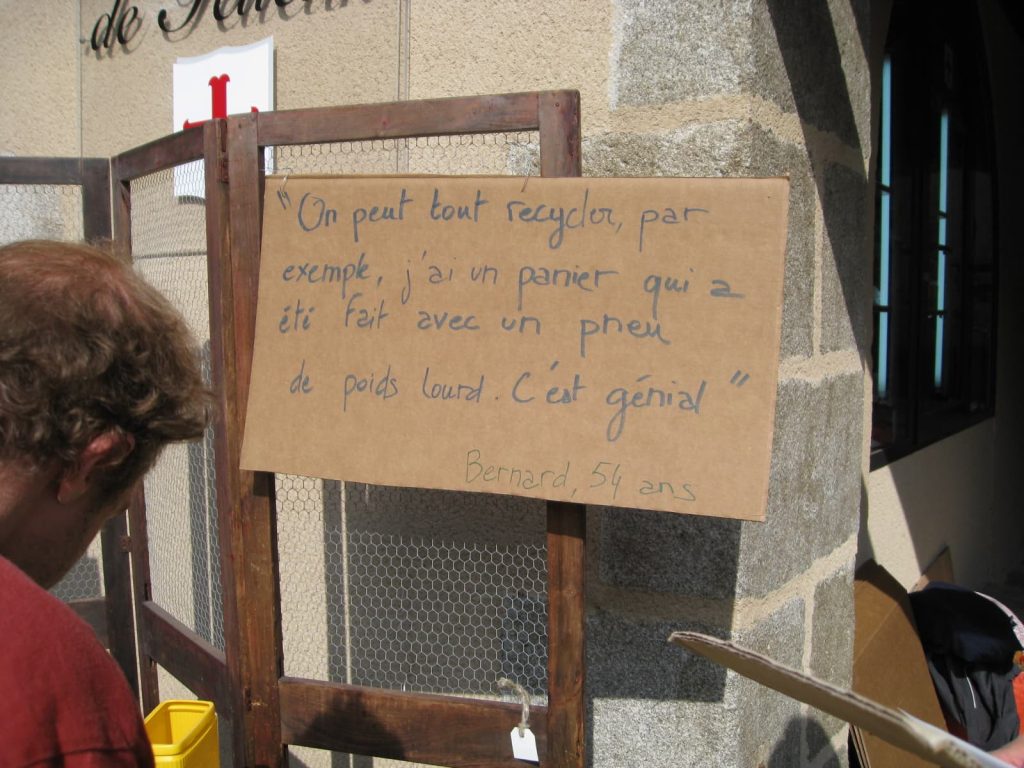 de
"On peut tout recycler, par
exemple, j'ai un panier qui a
été fait avec un pneu
de poids lourd. C'est génial"
Bernard, 54 ans